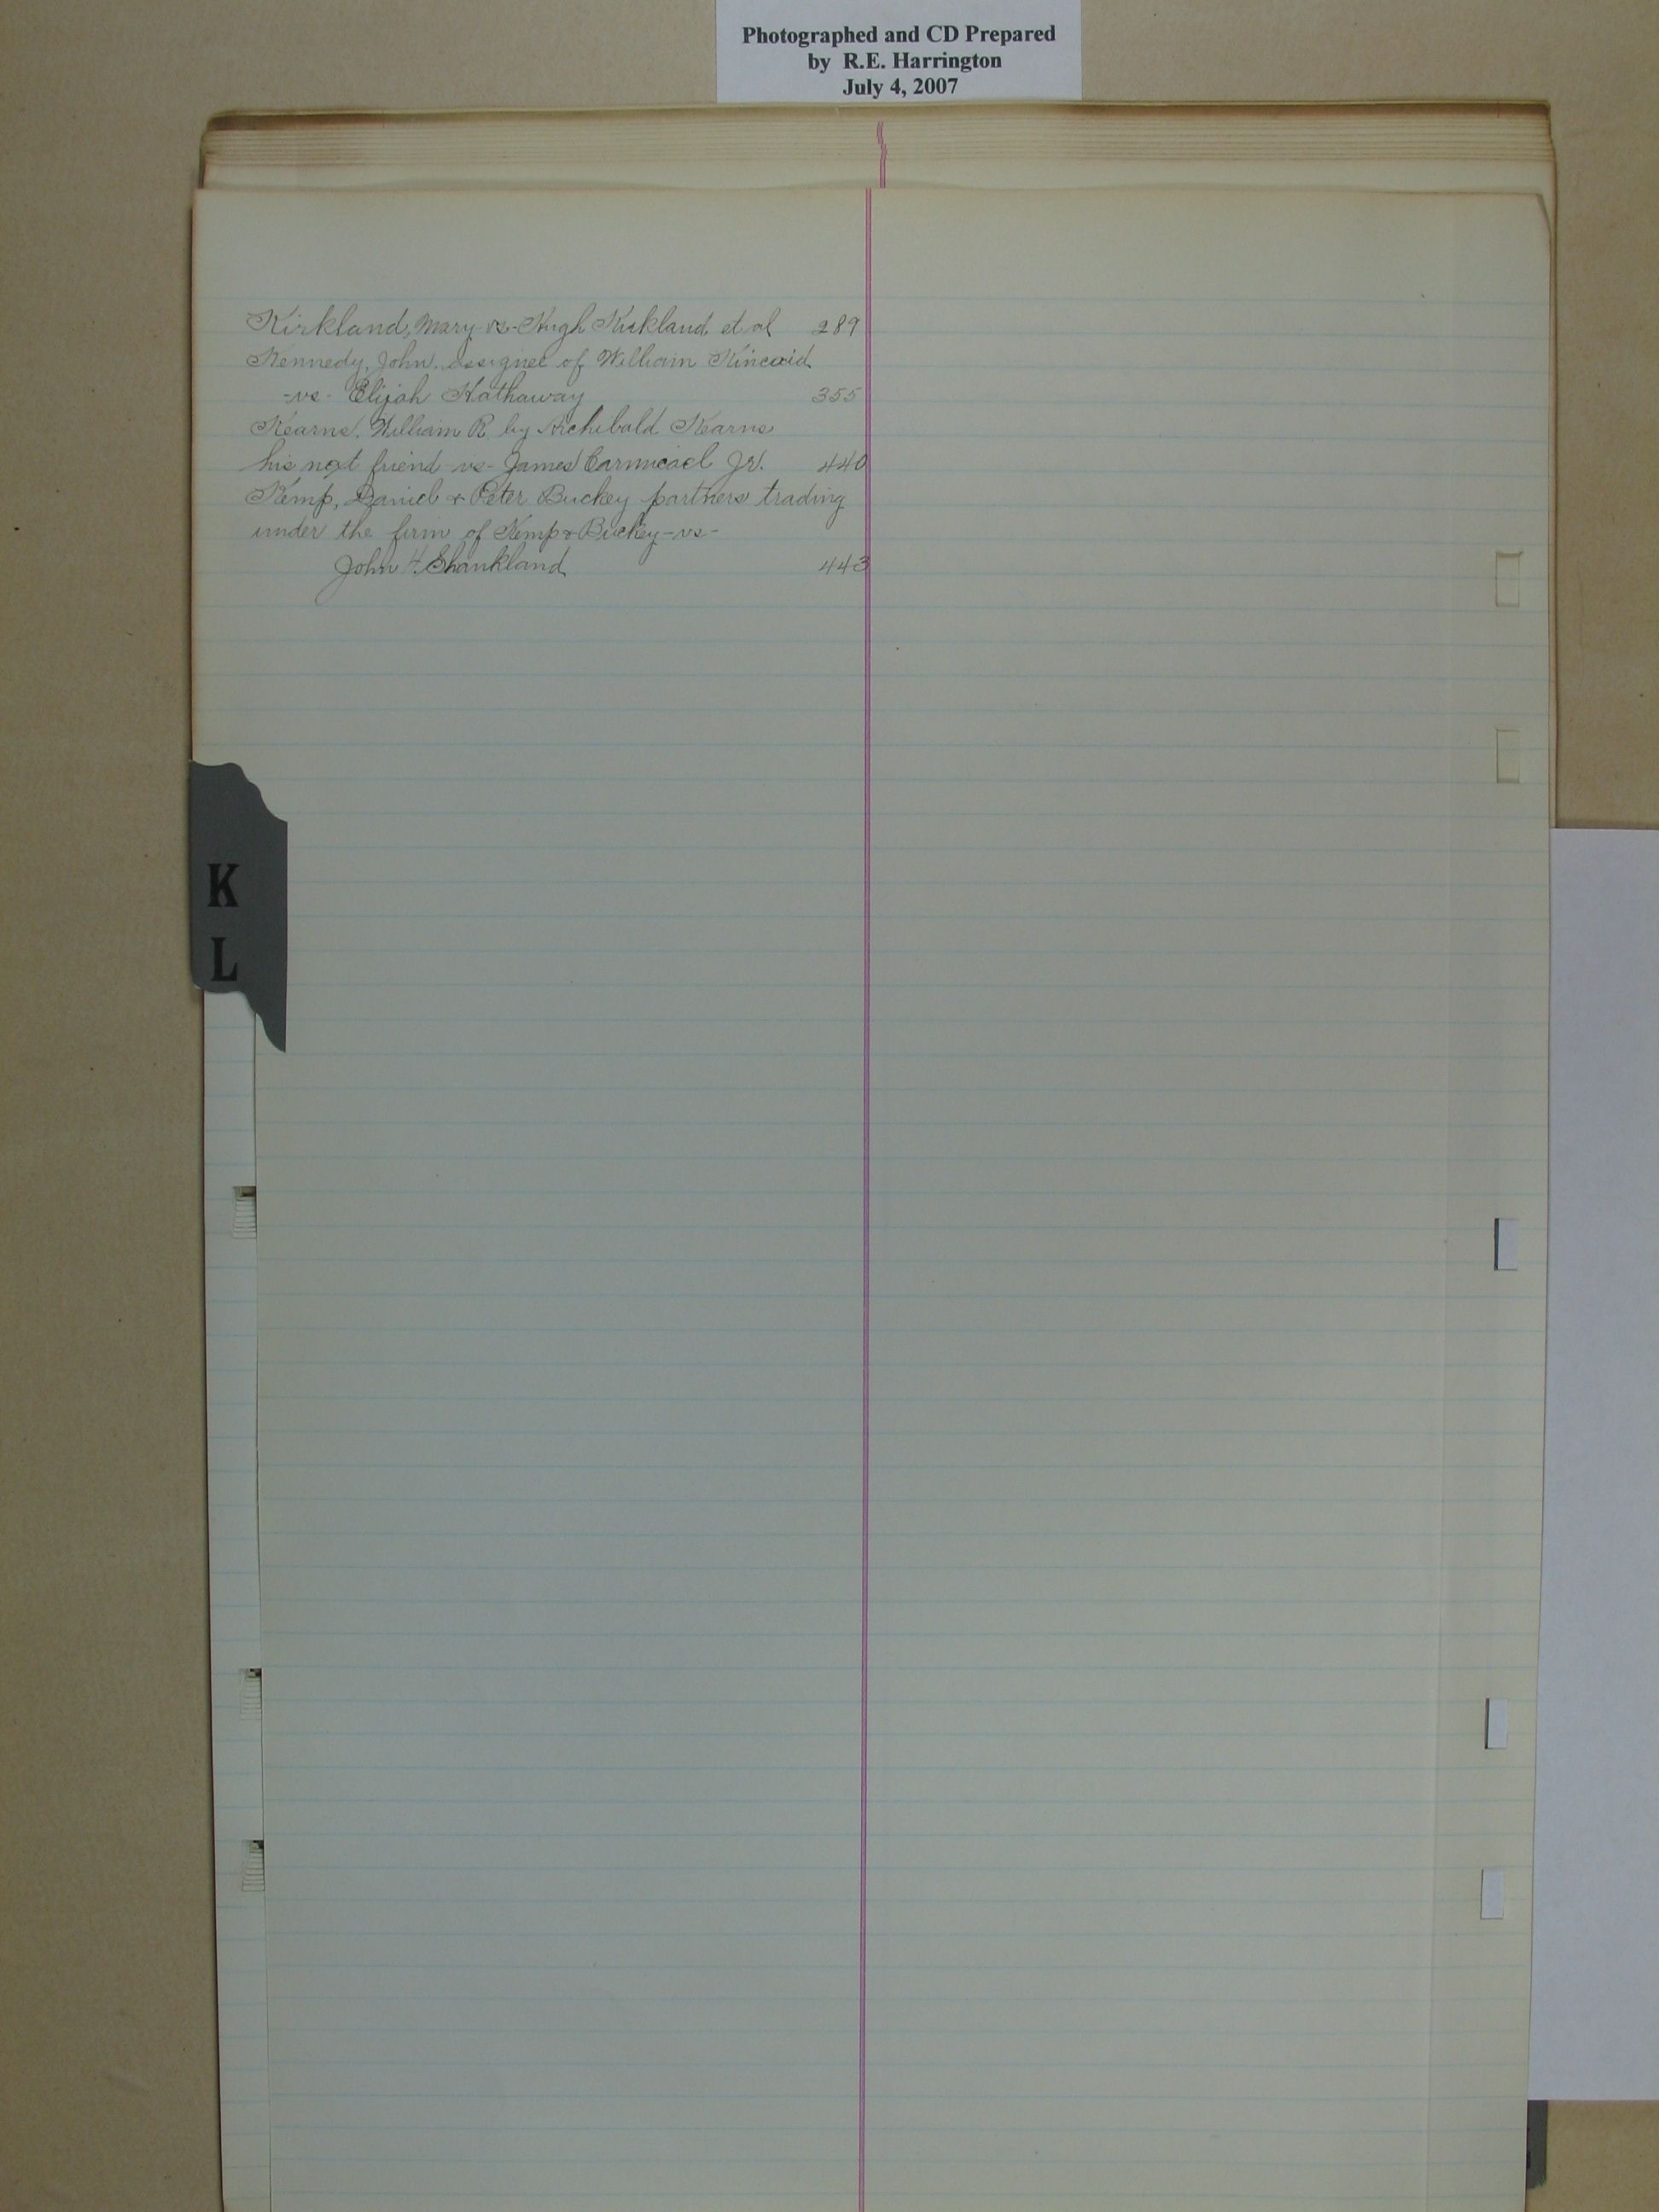 Photographed and CD Prepared
by R.E. Harrington
July 4, 2007
Kirkland, Mary -vs- Hugh Kirkland et al 289
Kennedy, John, assignee of William Kincaid
-vs- Elijah Hathaway 355
Kearns, William R by Archibald Kearns
his next friend -vs- James Carmicael Jr. 440
Kemp, Daniel & Peter Buckey partners trading
under the firm of Kemp & Buckey -vs-
John H. Shankland 443
K
L